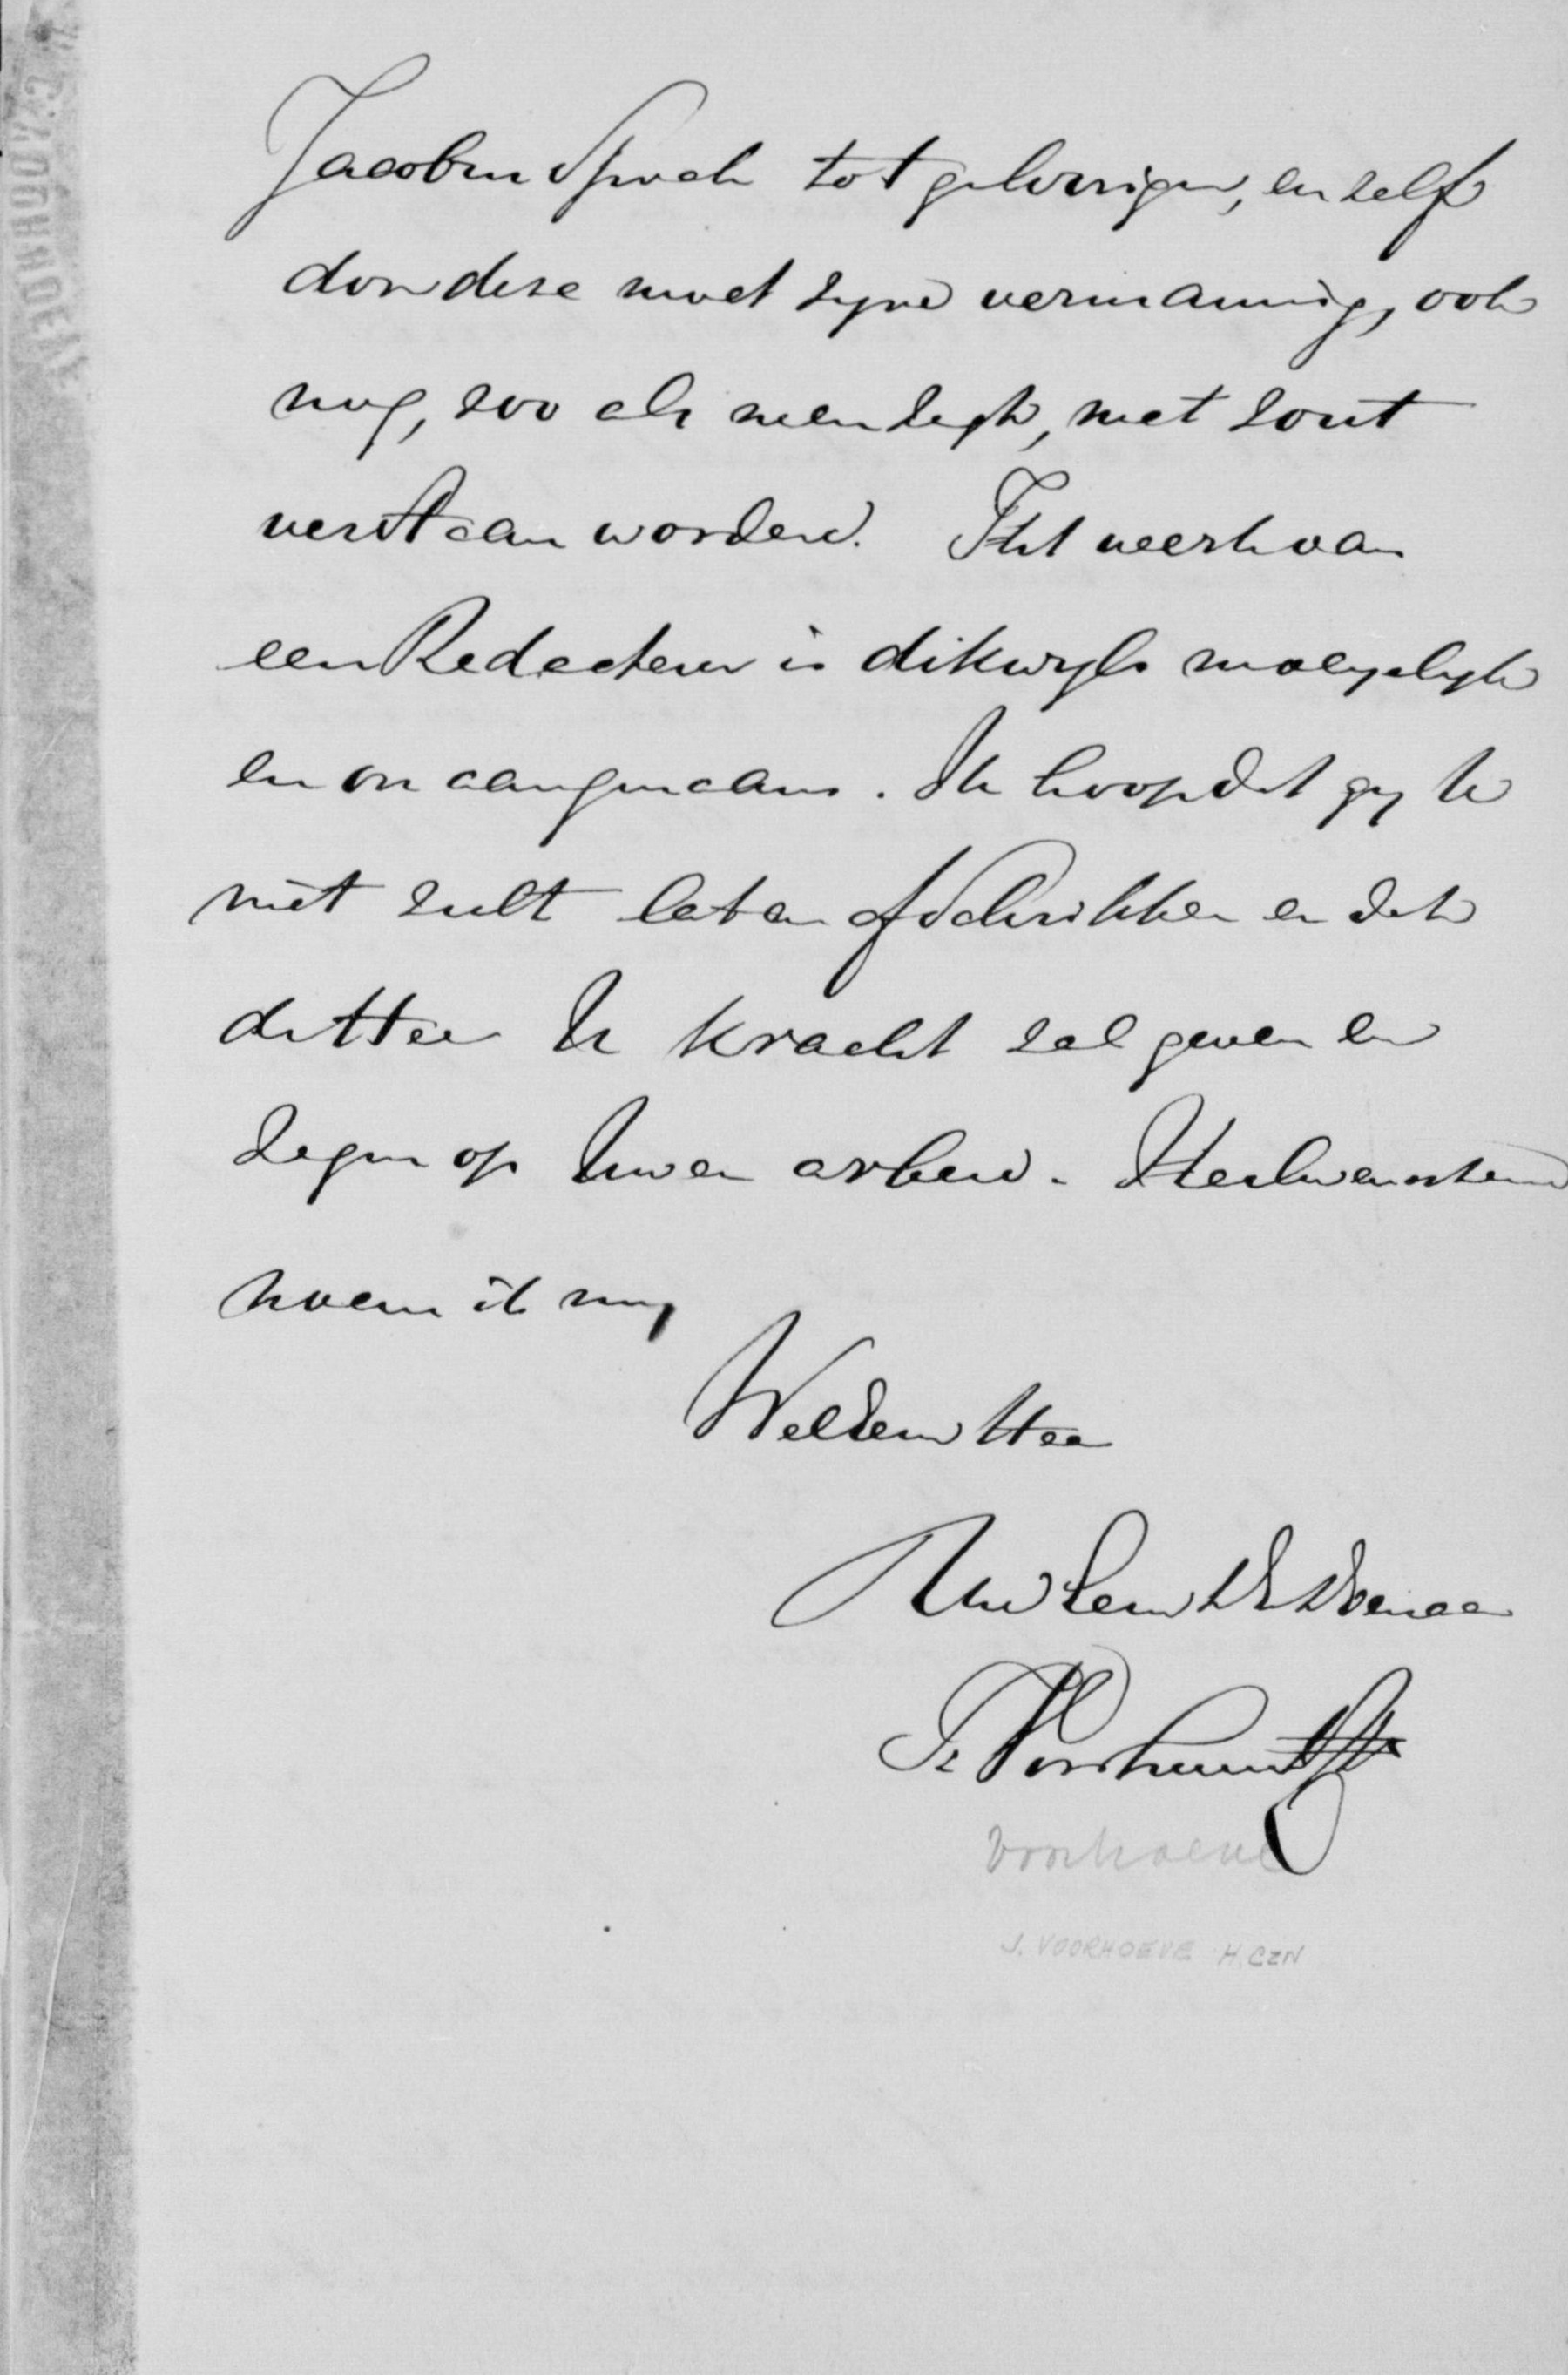 Jacobus sprak tot geloovigen, en zelfs
door deze moet zyne vermaning, ook
nog, zoo als men zegt, met zout
verstaan worden. Het werk van
een Redacteur is dikwyls moeyelyk
en onaangenaam. Ik hoop dat gy U
niet zult laten afschrikken en dat
de Heer U kracht zal geven en
zegen op Uwen arbeid. Heilwenschend
noem ik my
WelEdele Heer
Uw Dw Dienaar
J. Voorhoeve
Voorhoeve
J. VOORHOEVE H.CZN